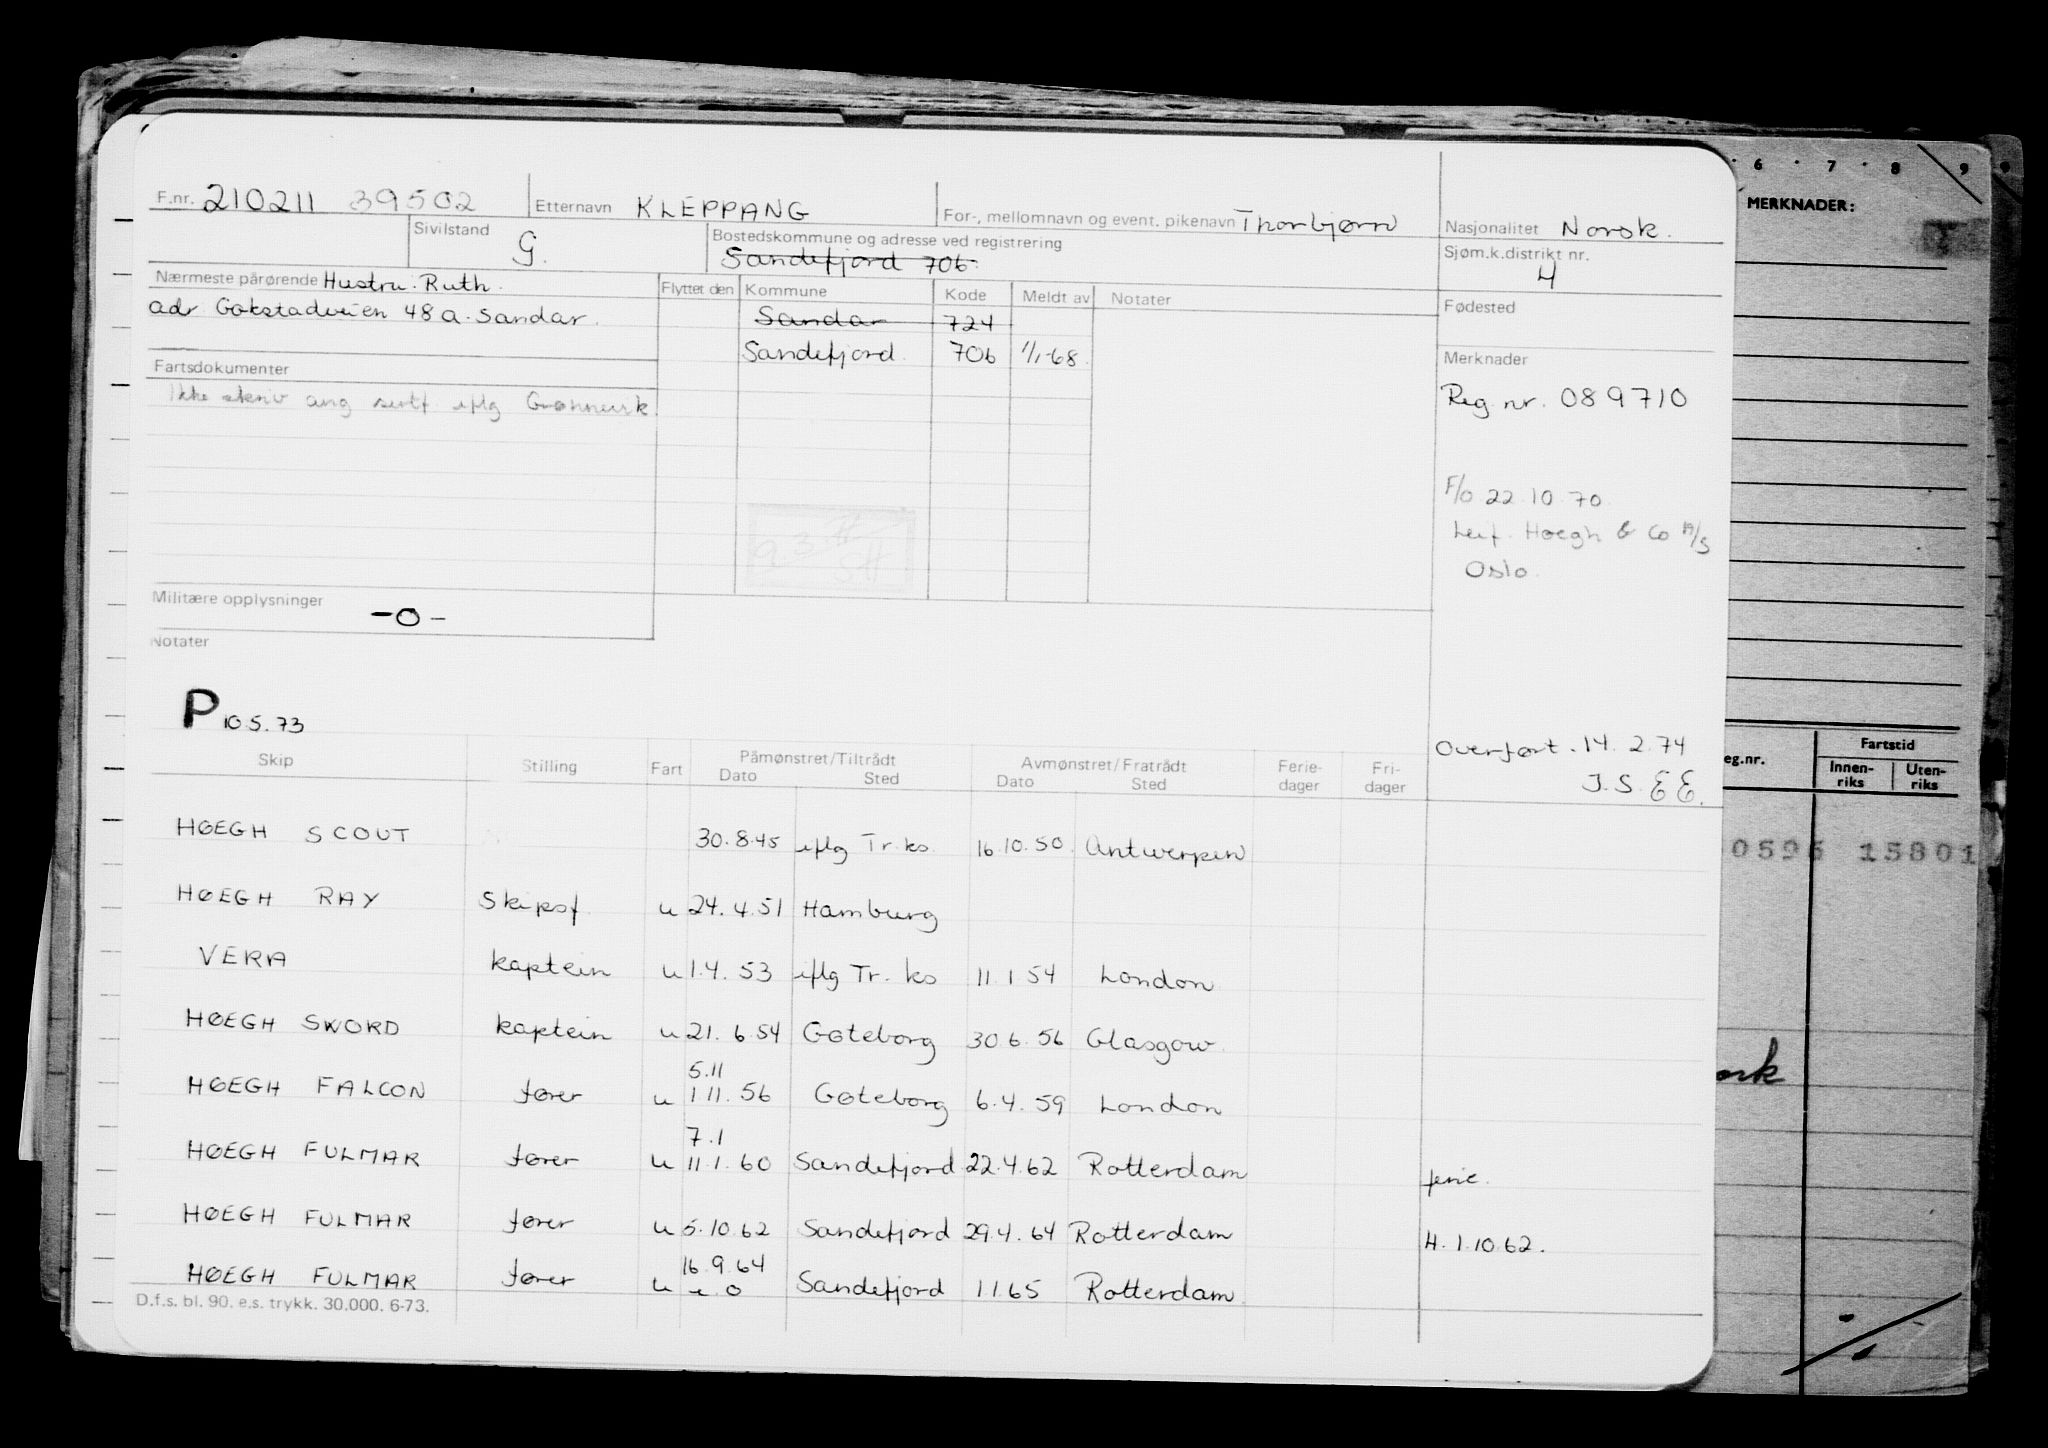 F.nr. 210211 39502 Etternavn KLEPPANG For-, mellomnavn og event. pikenavn Thorbjørn Nasjonalitet Norsk.
Sivilstand G. Bostedskommune og adresse ved registrering Sandefjord 706. Sjøm.k.distrikt nr. 4
Nærmeste pårørende Hustru: Ruth. Flyttet den Kommune Kode Meldt av Notater Fødested
adr Gokstadveien 48 a. Sandar. Sandar 724
Sandefjord. 706 1/1-68. Merknader
Fartsdokumenter
Ikke skriv ang sertf iflg Reg. nr. 089710
F/o 22.10.70.
Leif. Hoegh & Co A/S
Oslo.
Militære opplysninger -0-
Notater
P 10.5.73
Overført. 14. 2.74
J.S. EE.
Skip Stilling Fart Påmønstret/Tiltrådt Avmønstret/Fratrådt Ferie- Fri-
Dato Sted Dato Sted dager dager
HØEGH SCOUT 30.8.45 iflg Tr.ks. 16.10.50. Antwerpen
HØEGH RAY Skipsf. u 24.4.51 Hamburg
VERA kaptein u 1.4.53 iflg Tr. ks 11.1 54 London
HØEGH SWORD kaptein u 21.6.54 Gøteborg 30.6.56 Glasgow.
5.11
HØEGH FALCON fører u 1 11. 56 Gøteborg 6.4.59 London
7.1
HØEGH FULMAR fører u 11.1.60 Sandefjord 22.4.62 Rotterdam ferie.
HØEGH FULMAR fører u 5.10.62 Sandefjord 29.4.64 Rotterdam H. 1.10.62.
16.9.64
HØEGH FULMAR fører u u.o Sandefjord 1 1.65 Rotterdam.
D.f.s. bl. 90. e.s. trykk. 30.000. 6-73.
6 7 8 9
MERKNADER:
eg.nr. Fartstid
Innen-riks Uten-riks
0596 15801